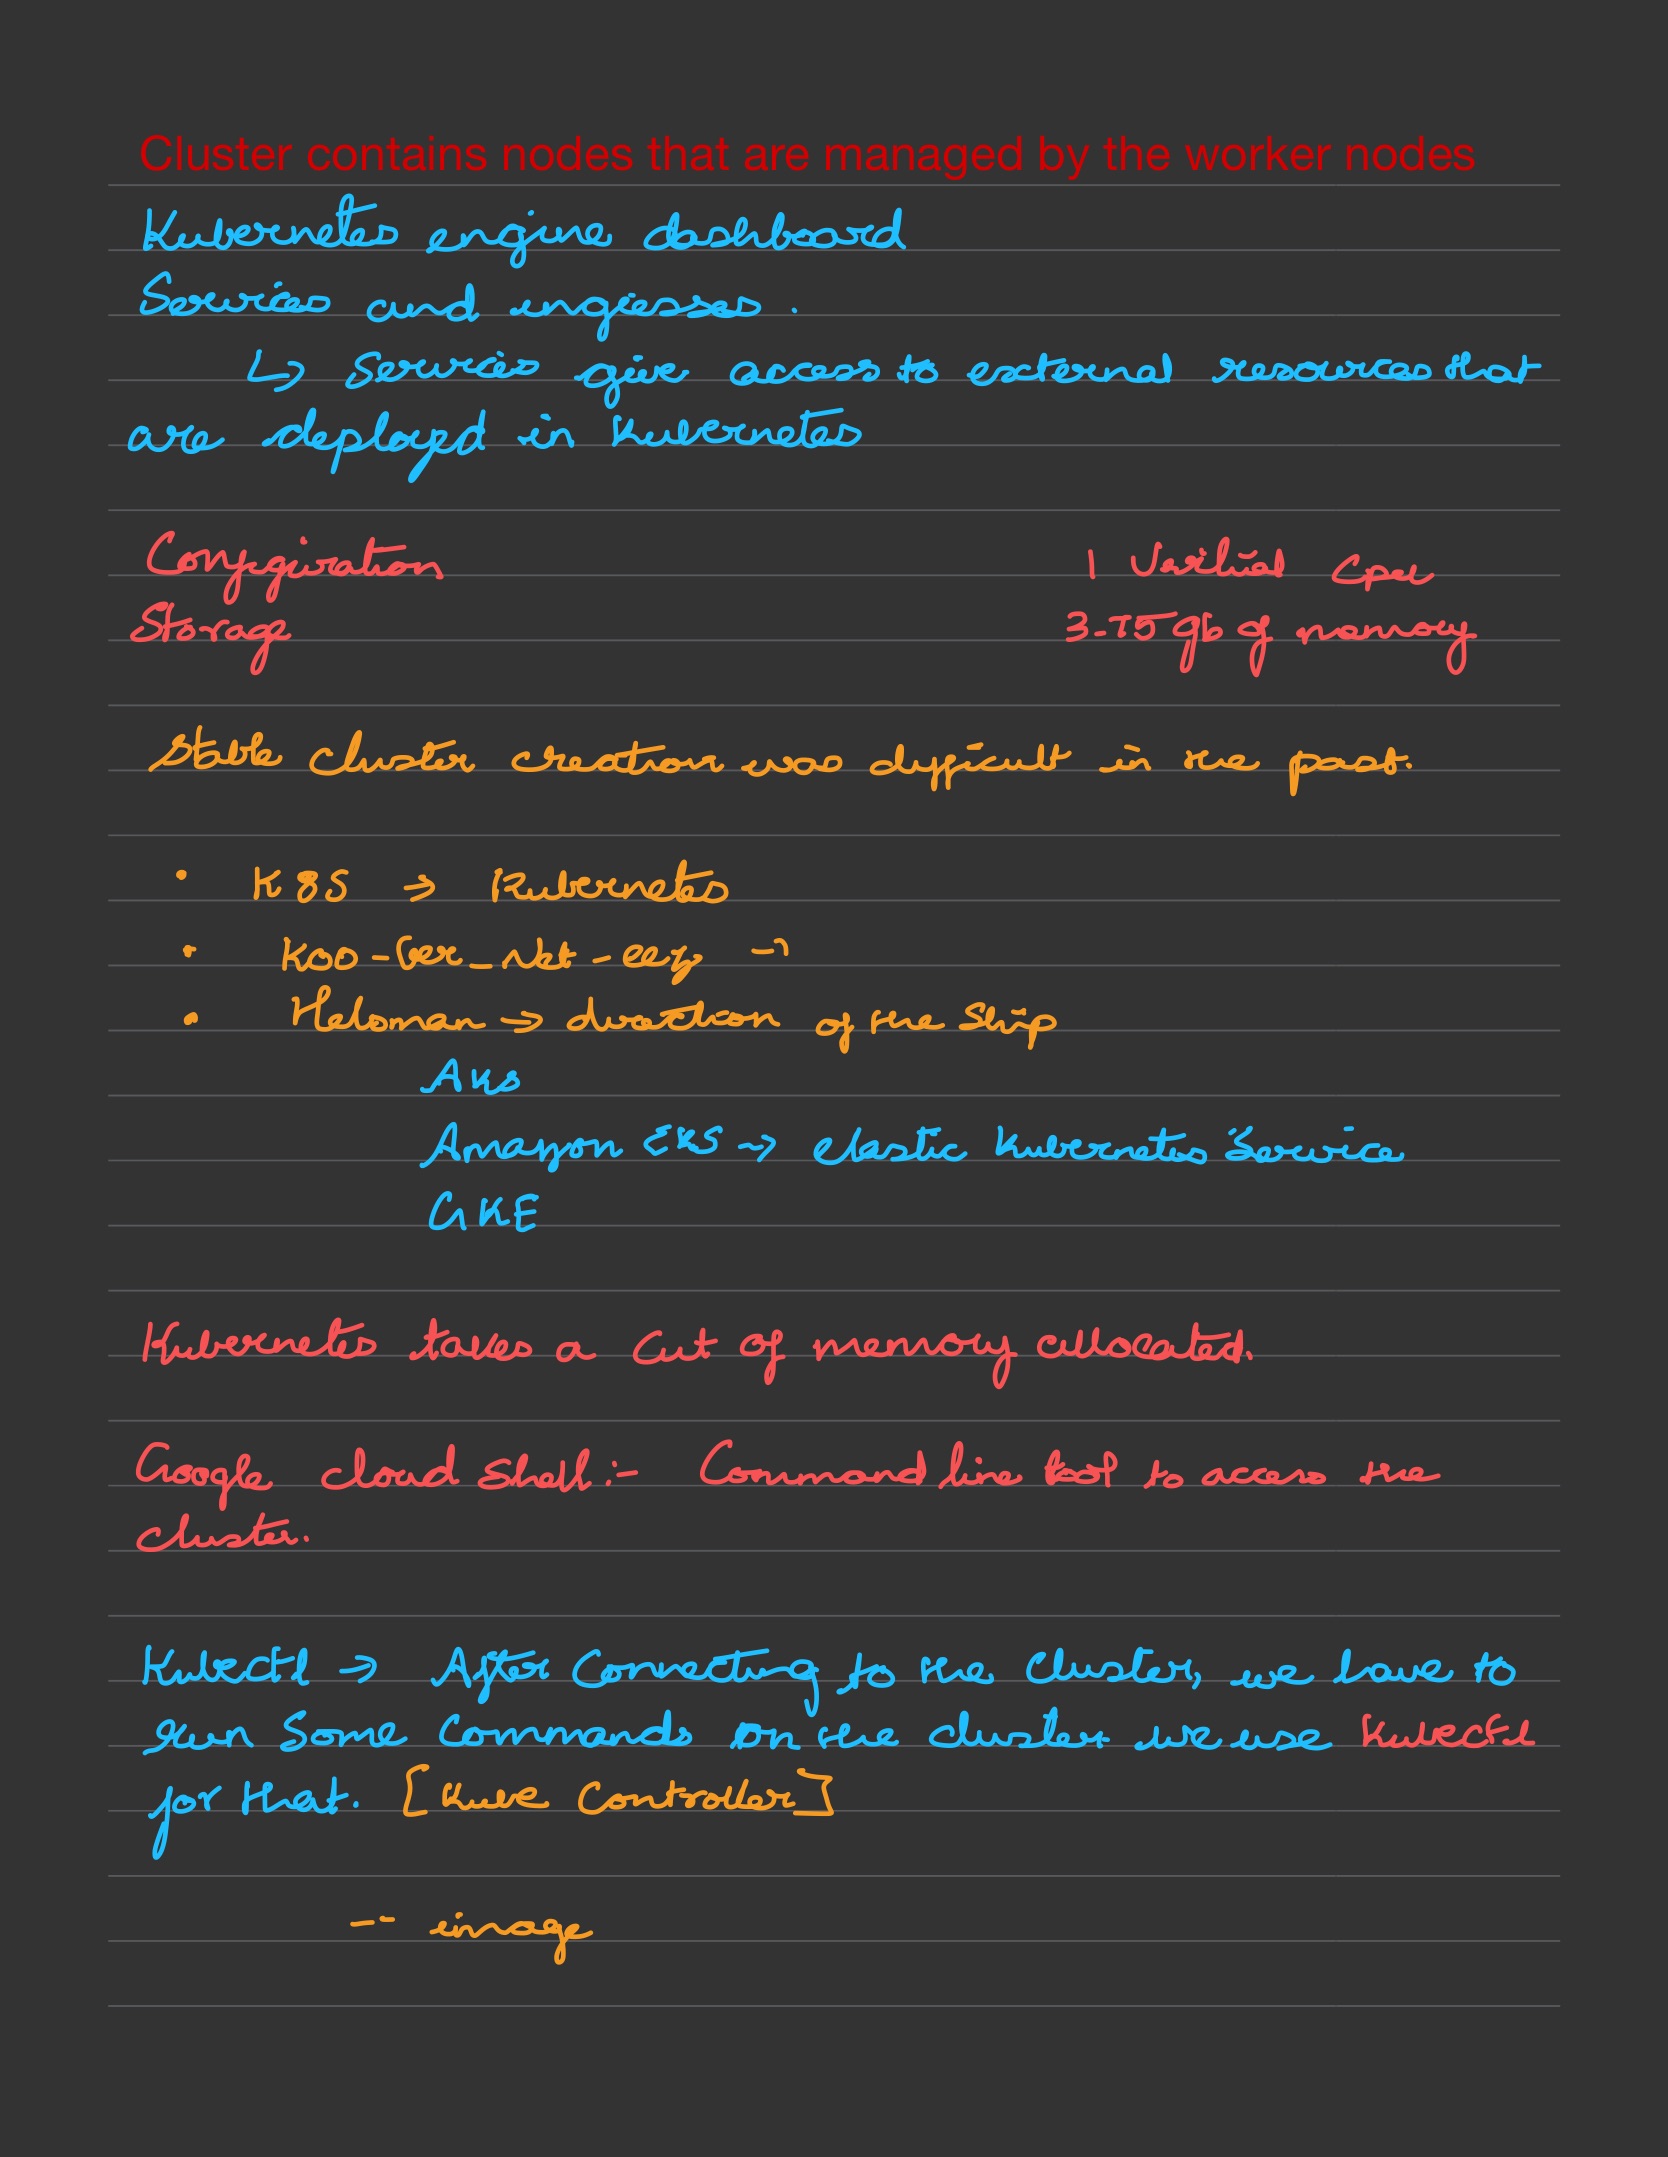 Cluster contains nodes that are managed by the worker nodes
Kubernetes engine dashboard
Services and ingresses.
↳ Services give access to external resources that
are deployed in Kubernetes
Configuration 1 Virtual Cpu
Storage 3.75 gb of memory
Stable cluster creation was difficult in the past.
• K8S → Kubernetes
• Koo-Ber-Net-eez →
• Helsman → direction of the Ship
AKS
Amazon EKS → elastic Kubernetes Service
GKE
Kubernetes takes a cut of memory allocated.
Google cloud shell:- Command line tool to access the
cluster.
Kubectl → After Connecting to the Cluster, we have to
run Some Commands on the cluster we use Kubectl
for that. [Kube Controller]
-- image